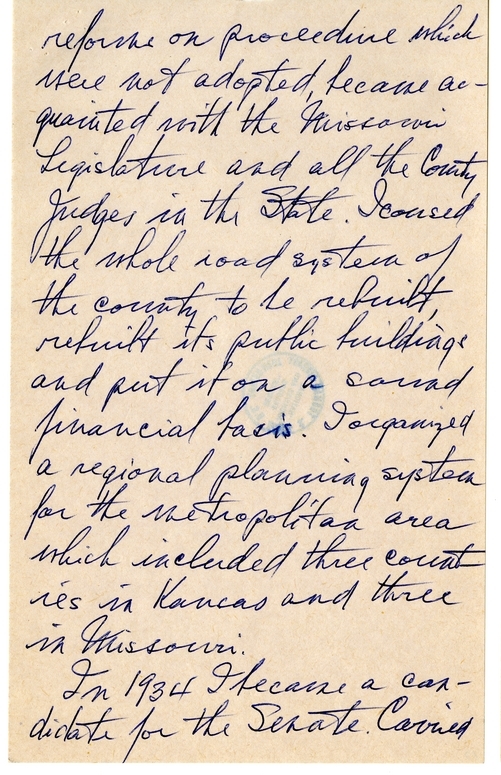 reforms on proceedure which
were not adopted, became ac-
quainted with the Missouri
Legislature and all the County
Judges in the State. I caused
the whole road system of
the county to be rebuilt,
rebuilt its public buildings
and put it on a sound
financial basis. I organized
a regional planning system
for the metropolitan area
which included three count
ies in Kansas and three
in Missouri.
In 1934 I became a can-
didate for the Senate. Carried